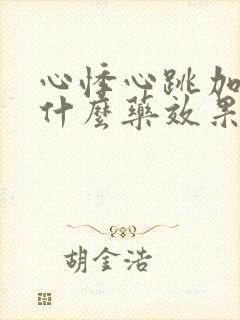 心悸心跳加
什麼藥效果
胡金浩